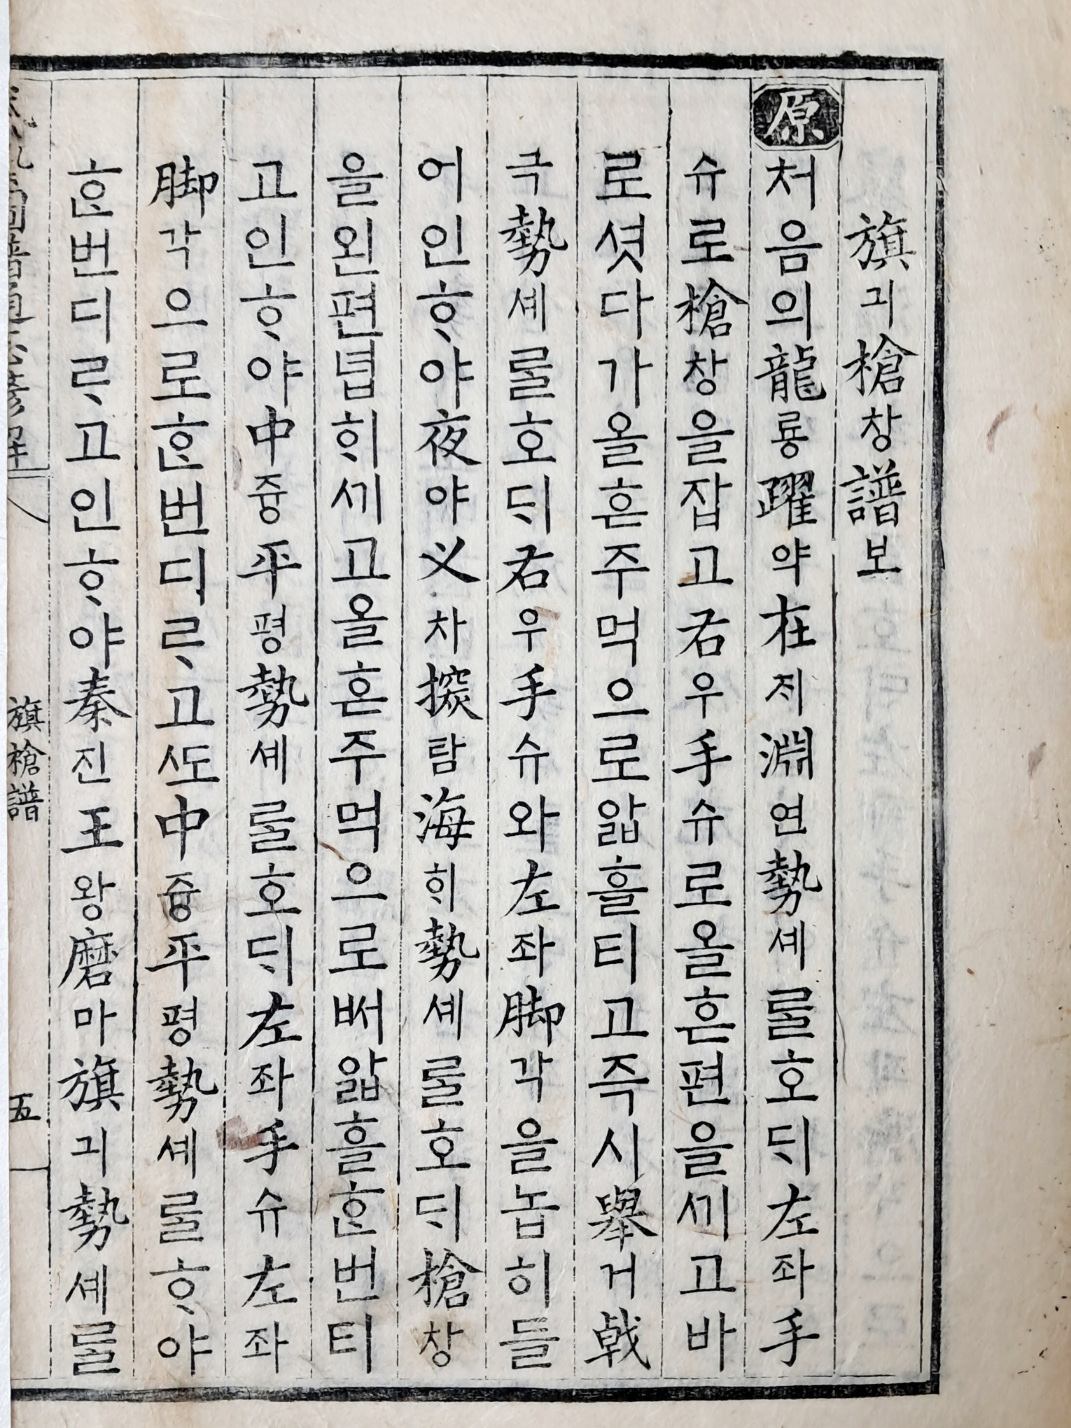 旗긔槍창譜보
原처음의龍룡躍약在ᄌᆡ淵연勢셰ᄅᆞᆯ호ᄃᆡ左좌手
슈로槍창을잡고右우手슈로올흔편을ᄭᅵ고바
로셧다가올흔주먹으로앏흘티고즉시擧거戟
극勢셰ᄅᆞᆯ호ᄃᆡ右우手슈와左좌脚각을놉히들
어인ᄒᆞ야夜야义차探탐海ᄒᆡ勢셰ᄅᆞᆯ호ᄃᆡ槍창
을왼편녑ᄒᆡᄭᅵ고올흔주먹으로ᄡᅥ앏흘ᄒᆞᆫ번티
고인ᄒᆞ야中듕平평勢셰ᄅᆞᆯ호ᄃᆡ左좌手슈左좌
脚각으로ᄒᆞᆫ번디ᄅᆞ고ᄯᅩ中듕平평勢셰ᄅᆞᆯᄒᆞ야
ᄒᆞᆫ번디ᄅᆞ고인ᄒᆞ야秦진王왕磨마旗긔勢셰ᄅᆞᆯ
旗槍譜
五